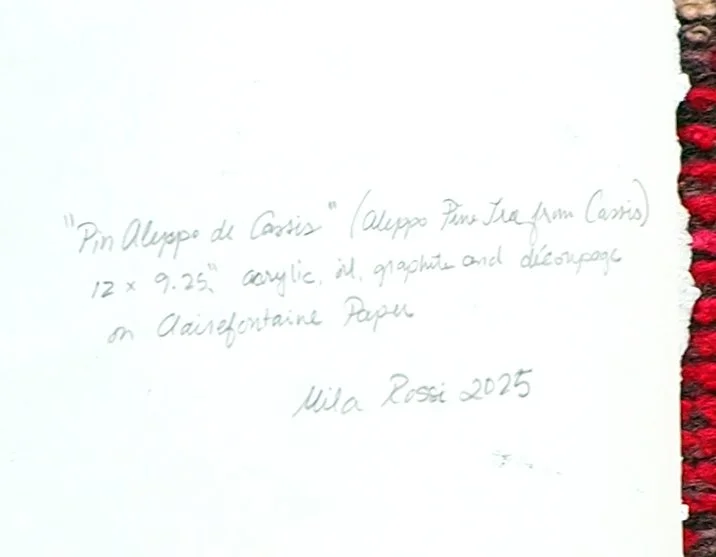 "Pin Aleppo de Cassis" (Aleppo Pine Tree from Cassis)
12 x 9.25", acrylic, oil, graphite and découpage
on Clairefontaine Paper
Mila Rossi 2025